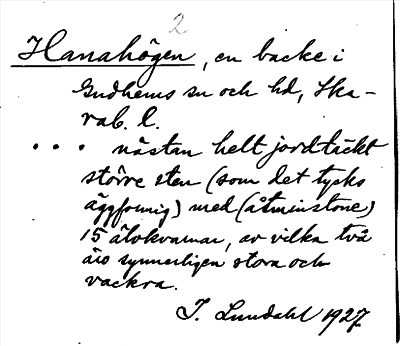 2
Hanahögen, en backe i
Gudhems sn och hd, Ska-
rab. l.
... nästan helt jordtäckt
större sten (som det tycks
äggformig) med (åtminstone)
15 älvkvarnar, av vilka två
äro synnerligen stora och
vackra.
J. Lundahl 1927.